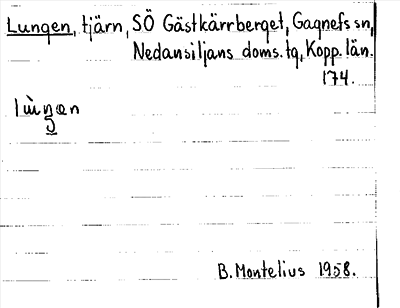 Lungen, tjärn, SÖ Gästkärrberget, Gagnefs sn,
Nedansiljans doms. tg, Kopp. län.
174.
lùngen
B. Montelius 1958.